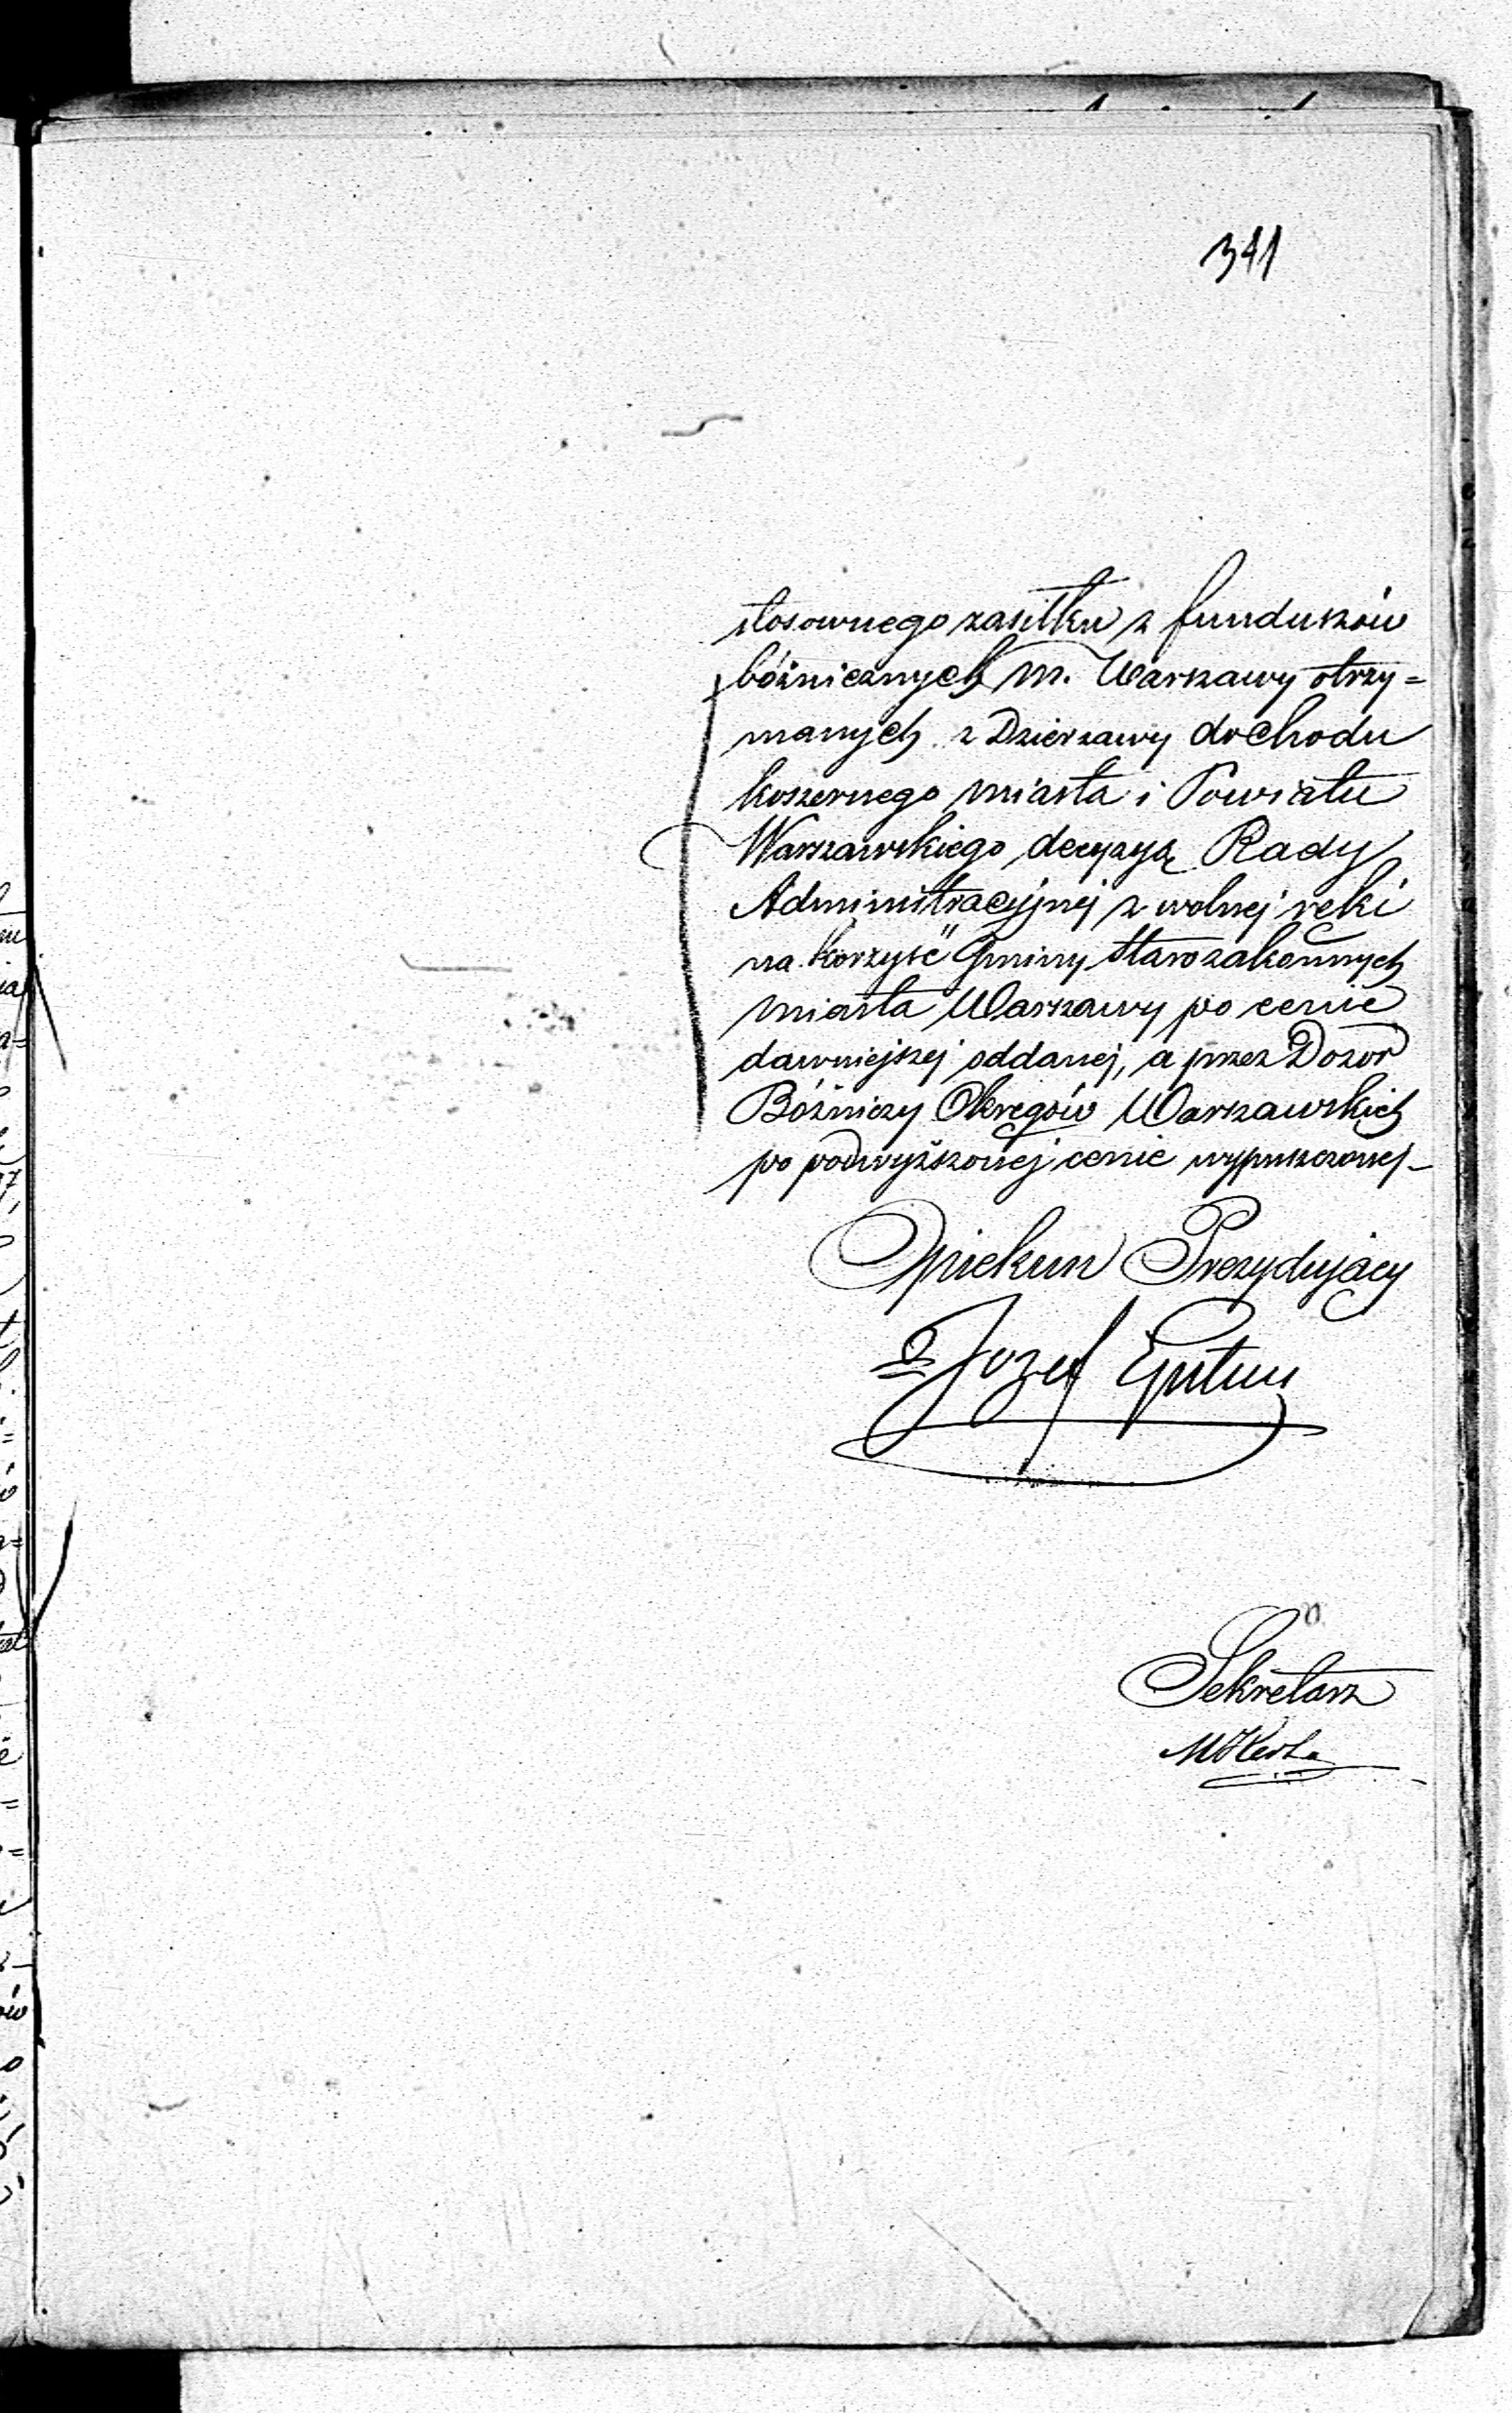 341
stosownego zasiłku z funduszów
bóżnicznych m. Warszawy otrzy=
manych z Dzierzawy dochodu
koszernego miasta i Powiatu
Warszawskiego decyzyą Rady
Administracyjnej z wolnej ręki
na korzyść Gminy Starozakonnych
miasta Warszawy po cenie
dawniejszej oddanej, a przez Dozor
Bóżniczy Okręgów Warszawskich
po podwyższonej cenie wypuszczonej_
Opiekun Prezydujący
Jozef
Sekretarz